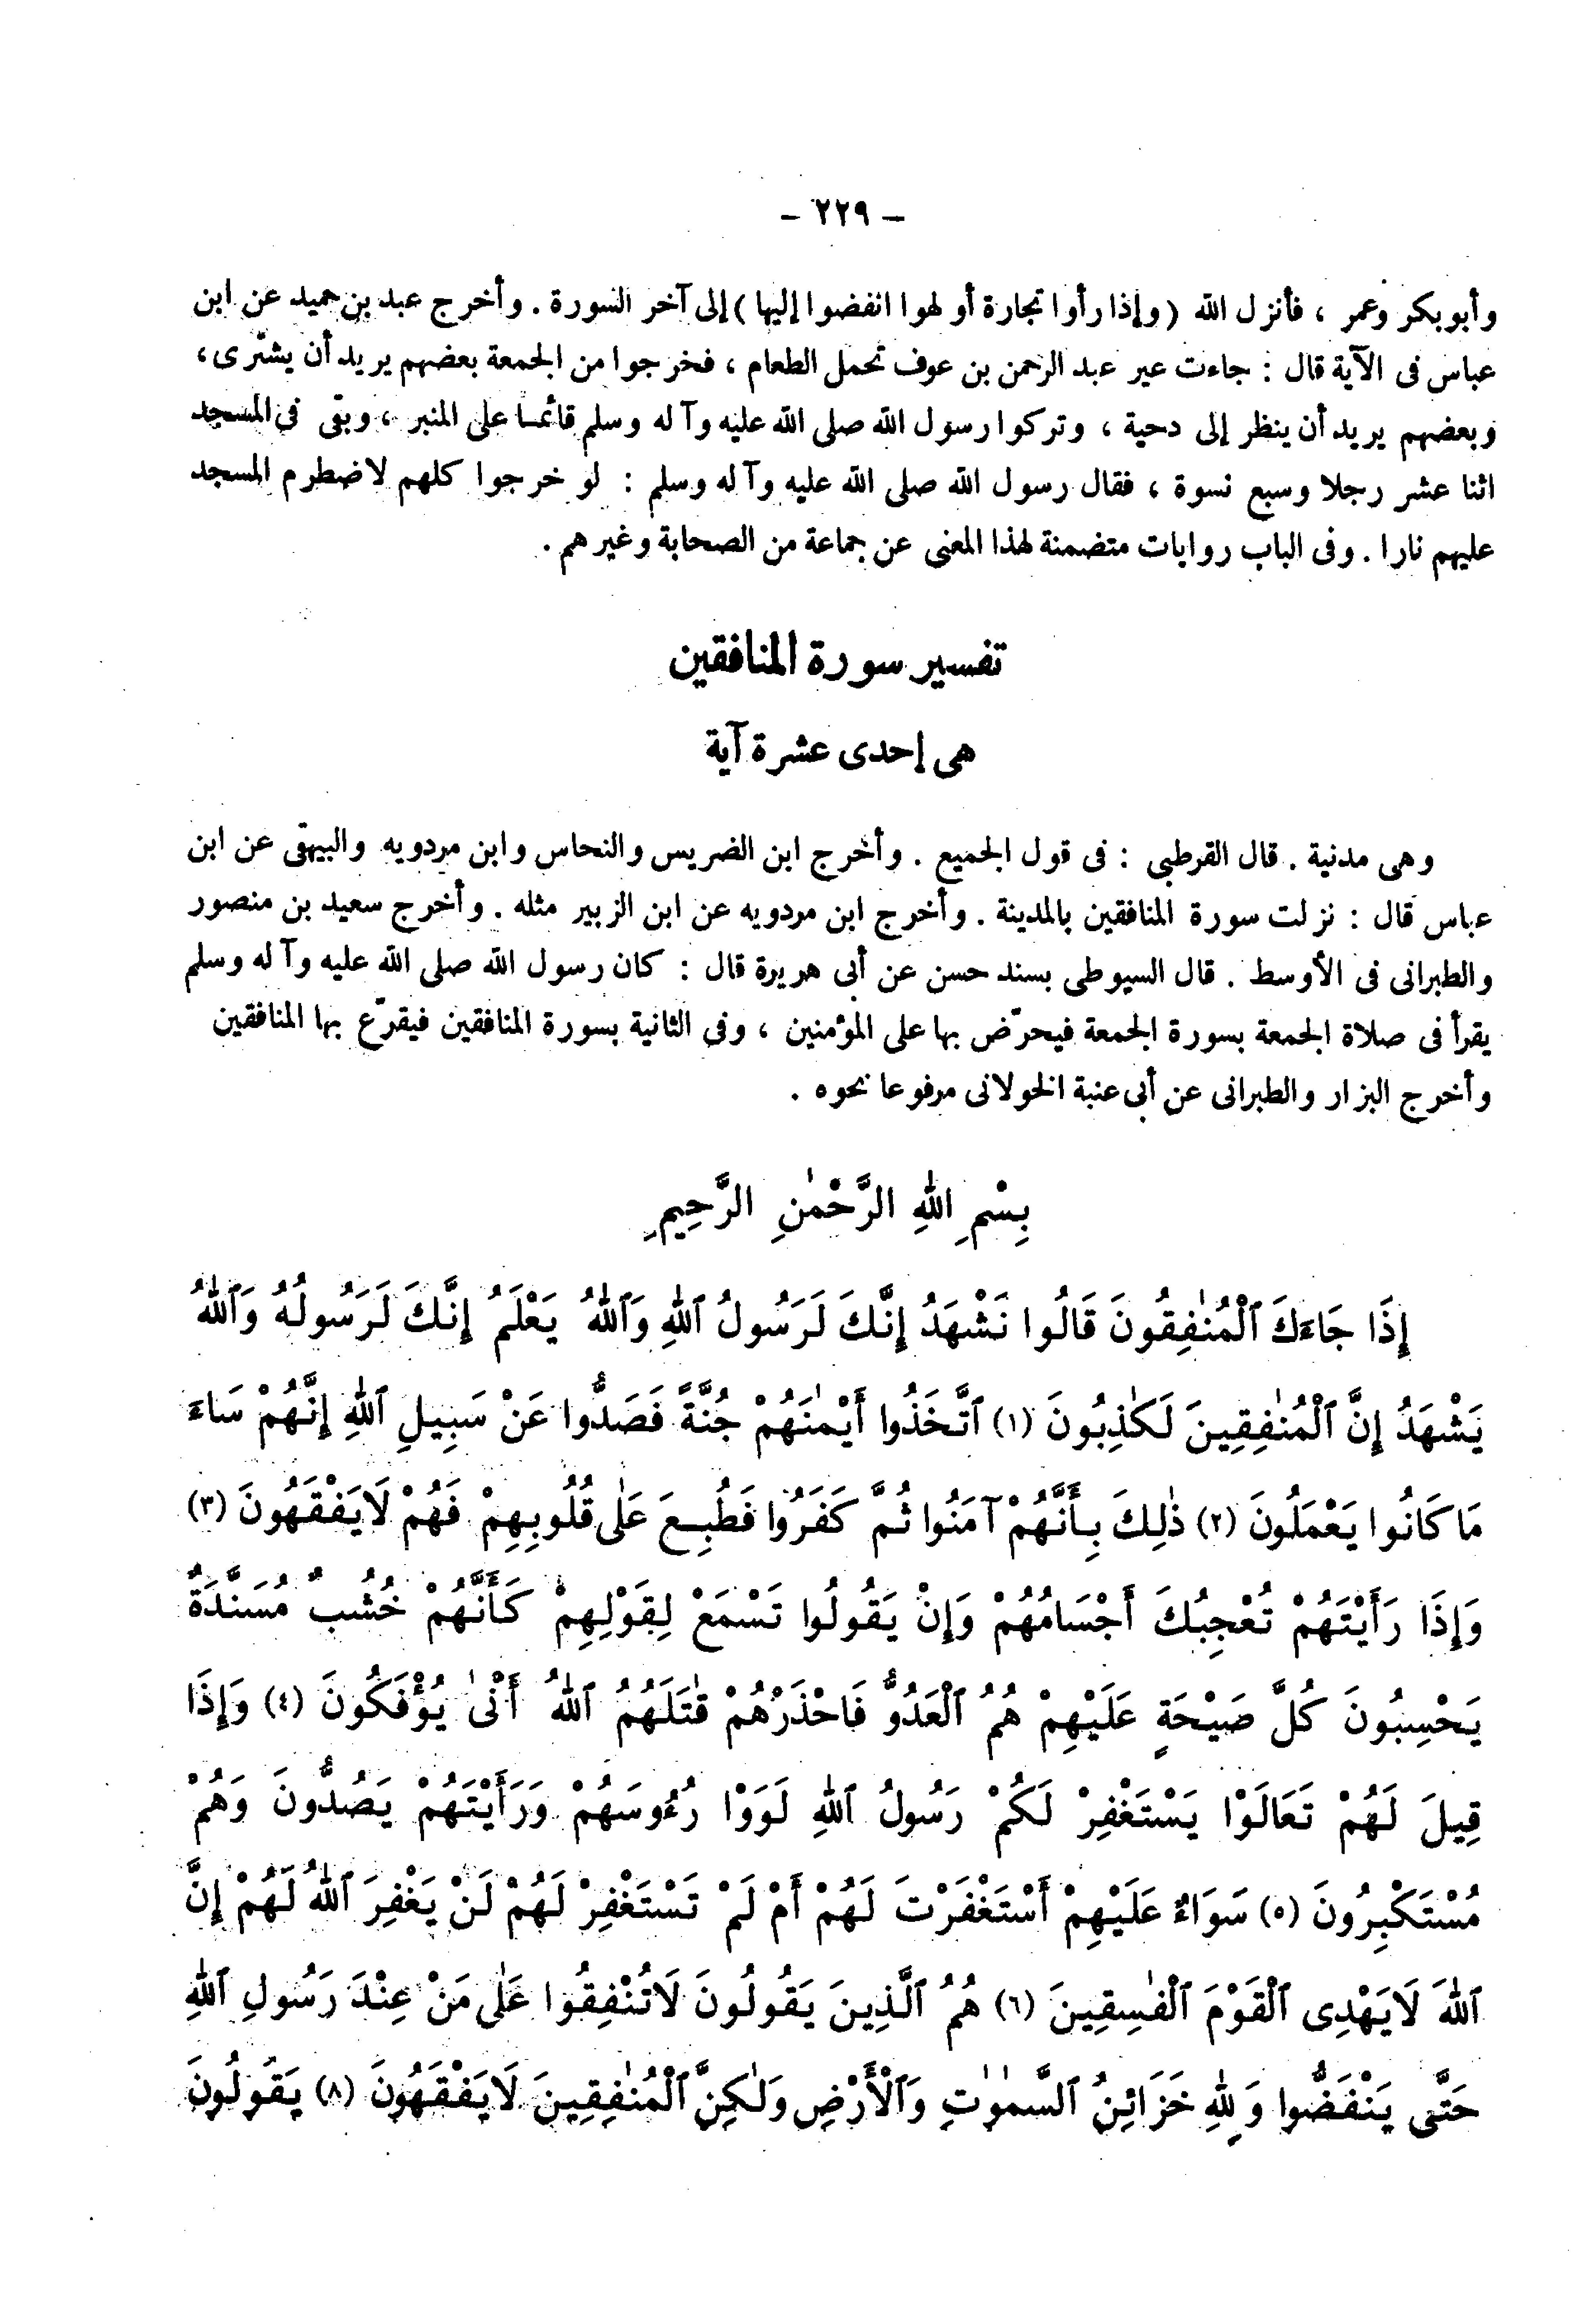 - ٢٢٩ -
وأبو بكر وعمر ، فأنزل الله ( وإذا رأوا تجارة أو لهوا انفضوا إليها ) إلى آخر السورة . وأخرج عبد بن حميد عن ابن
عباس فى الآية قال : جاءت عير عبد الرحمن بن عوف تحمل الطعام ، فخرجوا من الجمعة بعضهم يريد أن يشترى ،
وبعضهم يريد أن ينظر إلى دحية ، وتركوا رسول الله صلى الله عليه وآله وسلم قائما على المنبر ، وبقى فى المسجد
اثنا عشر رجلا وسبع نسوة ، فقال رسول الله صلى الله عليه وآله وسلم : لو خرجوا كلهم لاضطرم المسجد
عليهم نارا . وفى الباب روايات متضمنة لهذا المعنى عن جماعة من الصحابة وغيرهم .
تفسير سورة المنافقين
هى إحدى عشرة آية
وهى مدنية . قال القرطبى : فى قول الجميع . وأخرج ابن الضريس والنحاس وابن مردويه والبيهقى عن ابن
عباس قال : نزلت سورة المنافقين بالمدينة . وأخرج ابن مردويه عن ابن الزبير مثله . وأخرج سعيد بن منصور
والطبرانى فى الأوسط . قال السيوطى بسند حسن عن أبى هريرة قال : كان رسول الله صلى الله عليه وآله وسلم
يقرأ فى صلاة الجمعة بسورة الجمعة فيحرّض بها على المؤمنين ، وفى الثانية بسورة المنافقين فيقرّع بها المنافقين
وأخرج البزار والطبرانى عن أبى عنبة الخولانى مرفوعا نحوه .
بِسْمِ اللهِ الرَّحْمٰنِ الرَّحِيمِ
إِذَا جَاءَكَ ٱلْمُنٰفِقُونَ قَالُوا نَشْهَدُ إِنَّكَ لَرَسُولُ ٱللهِ وَٱللهُ يَعْلَمُ إِنَّكَ لَرَسُولُهُ وَٱللهُ
يَشْهَدُ إِنَّ ٱلْمُنٰفِقِينَ لَكٰذِبُونَ (١) ٱتَّخَذُوا أَيْمٰنَهُمْ جُنَّةً فَصَدُّوا عَنْ سَبِيلِ ٱللهِ إِنَّهُمْ سَاءَ
مَا كَانُوا يَعْمَلُونَ (٢) ذٰلِكَ بِأَنَّهُمْ آمَنُوا ثُمَّ كَفَرُوا فَطُبِعَ عَلٰى قُلُوبِهِمْ فَهُمْ لَا يَفْقَهُونَ (٣)
وَإِذَا رَأَيْتَهُمْ تُعْجِبُكَ أَجْسَامُهُمْ وَإِنْ يَقُولُوا تَسْمَعْ لِقَوْلِهِمْ كَأَنَّهُمْ خُشُبٌ مُسَنَّدَةٌ
يَحْسِبُونَ كُلَّ صَيْحَةٍ عَلَيْهِمْ هُمُ ٱلْعَدُوُّ فَاحْذَرْهُمْ قٰتَلَهُمُ ٱللهُ أَنّٰى يُؤْفَكُونَ (٤) وَإِذَا
قِيلَ لَهُمْ تَعَالَوْا يَسْتَغْفِرْ لَكُمْ رَسُولُ ٱللهِ لَوَوْا رُءُوسَهُمْ وَرَأَيْتَهُمْ يَصُدُّونَ وَهُمْ
مُسْتَكْبِرُونَ (٥) سَوَاءٌ عَلَيْهِمْ أَسْتَغْفَرْتَ لَهُمْ أَمْ لَمْ تَسْتَغْفِرْ لَهُمْ لَنْ يَغْفِرَ ٱللهُ لَهُمْ إِنَّ
ٱللهَ لَا يَهْدِى ٱلْقَوْمَ ٱلْفٰسِقِينَ (٦) هُمُ ٱلَّذِينَ يَقُولُونَ لَا تُنْفِقُوا عَلٰى مَنْ عِنْدَ رَسُولِ ٱللهِ
حَتَّى يَنْفَضُّوا وَلِلهِ خَزَائِنُ ٱلسَّمٰوٰتِ وَٱلْأَرْضِ وَلٰكِنَّ ٱلْمُنٰفِقِينَ لَا يَفْقَهُونَ (٨) يَقُولُونَ